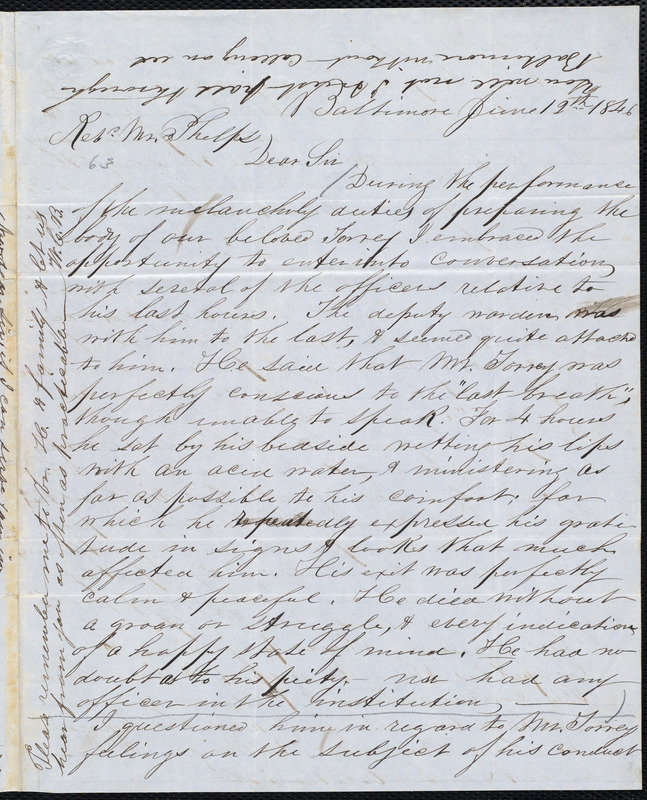 You will not I trust pass through
Baltimore without calling on us
Baltimore June 12th 1846
Revd. Mr. Phelps
63
Dear Sir
During the performance
of the melancholy duties of preparing the
body of our beloved Torrey I embraced the
opportunity to enter into conversation
with several of the officers relative to
his last hours. The deputy warden was
with him to the last, & seemed quite attached
to him. He said that Mr. Torrey was
perfectly conscious to the "last breath",
though unable to speak. For 4 hours
he sat by his bedside wetting his lips
with an acid water, & ministering as
far as possible to his comfort, for
which he repeatedly expressed his grati
tude in signs & looks that much
affected him. His exit was perfectly
calm & peaceful. He died without
a groan or struggle, & every indication
of a happy state of mind. He had no
doubt as to his piety — nor had any
officer in the institution —
I questioned him in regard to Mr Torrey
feelings on the subject of his conduct
Please remember me to bro. H. & family & let us
hear from you as often as practicable